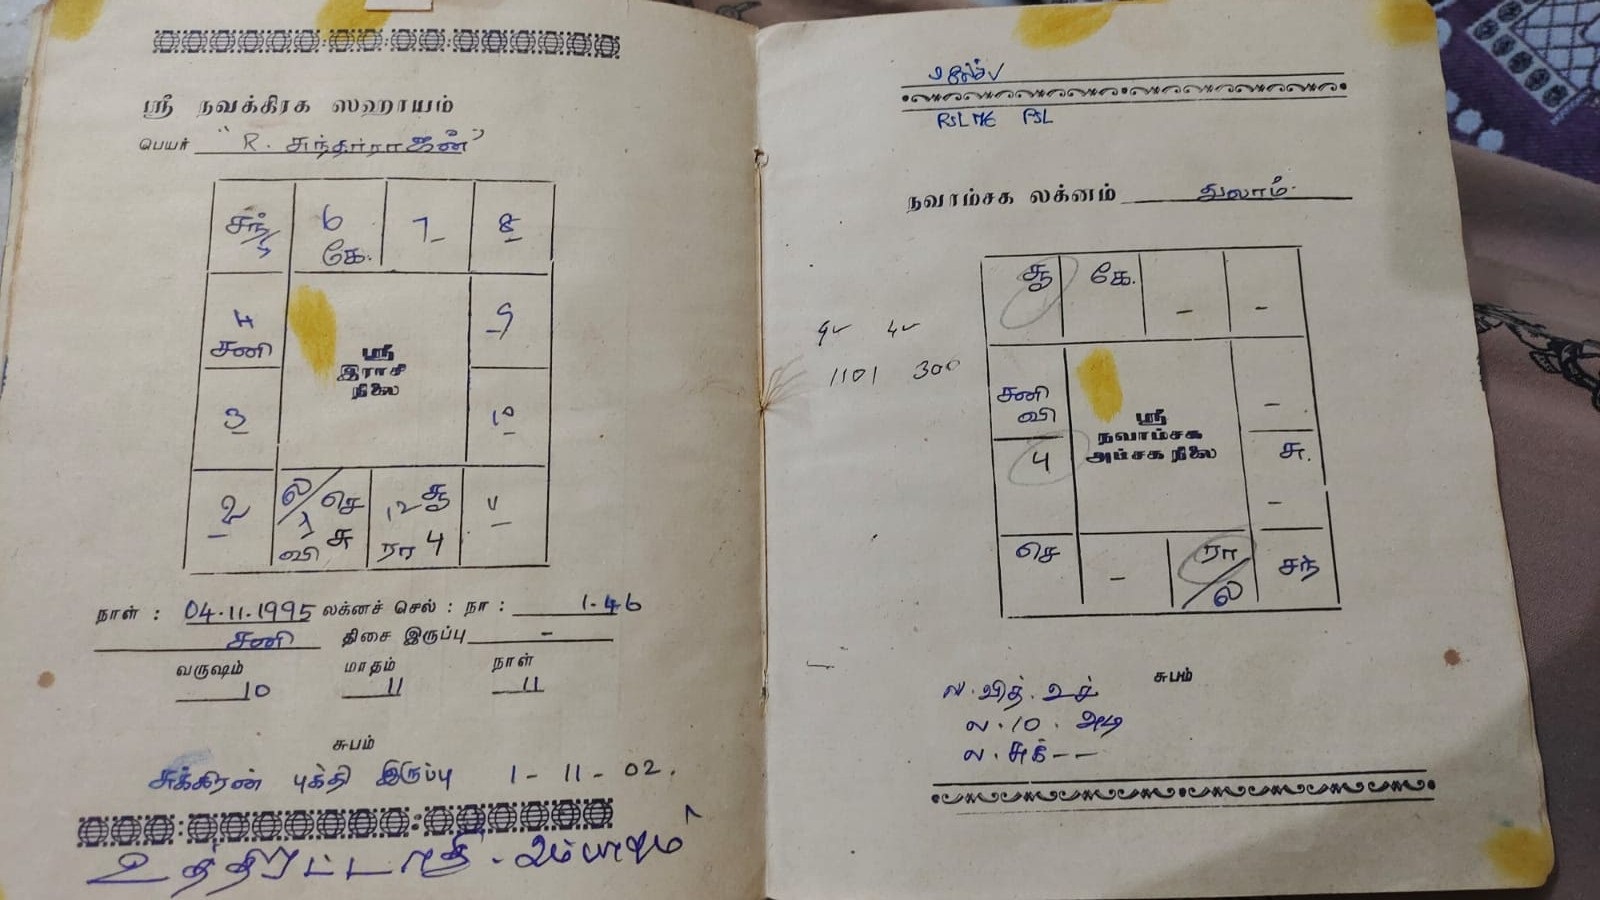 ஸ்ரீ நவக்கிரக ஸஹாயம்
பெயர் "R. சுந்தர்ராஜன்"
சந் 5 6 7 8
கே.
4 9
சனி
ஸ்ரீ
இராசி
நிலை
3 10
2 ல/1 செ 12 சூ 11
வி சு ரா பு
நாள் : 04.11.1995 லக்னச் செல் : நா : 1-46
சனி திசை இருப்பு -
வருஷம் மாதம் நாள்
10 11 11
சுபம்
சுக்கிரன் புக்தி இருப்பு 1 - 11 - 02.
உத்திரட்டாதி -
நவாம்சக லக்னம் துலாம்.
சூ கே. - -
1101 300
சனி -
வி
ஸ்ரீ
நவாம்சக
அம்சக நிலை
பு சு.
-
செ - ரா/ல சந்
சுபம்